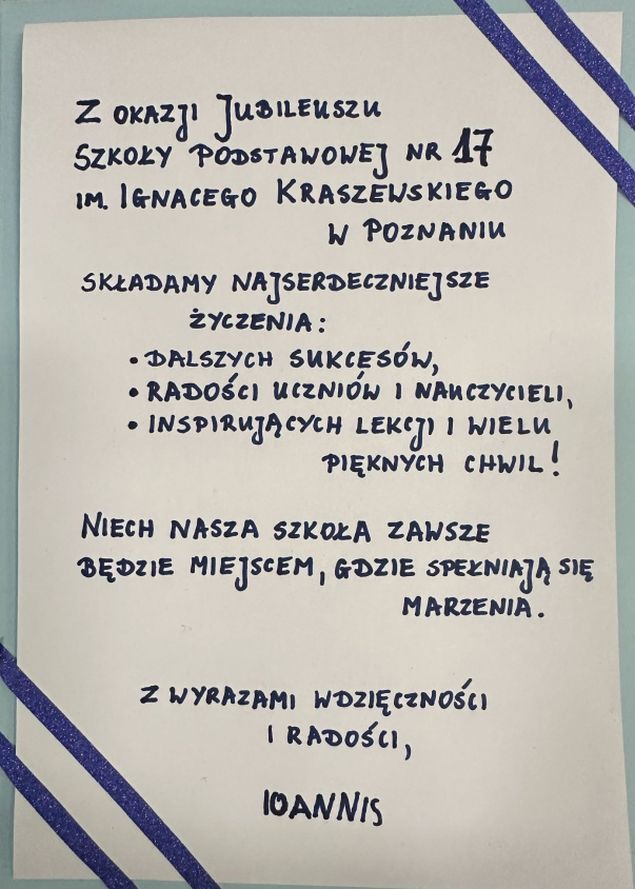 Z OKAZJI JUBILEUSZU
SZKOŁY PODSTAWOWEJ NR 17
IM. IGNACEGO KRASZEWSKIEGO
W POZNANIU
SKŁADAMY NAJSERDECZNIEJSZE
ŻYCZENIA:
• DALSZYCH SUKCESÓW,
• RADOŚCI UCZNIÓW I NAUCZYCIELI,
• INSPIRUJĄCYCH LEKCJI I WIELU
PIĘKNYCH CHWIL!
NIECH NASZA SZKOŁA ZAWSZE
BĘDZIE MIEJSCEM, GDZIE SPEŁNIAJĄ SIĘ
MARZENIA.
Z WYRAZAMI WDZIĘCZNOŚCI
I RADOŚCI,
IOANNIS